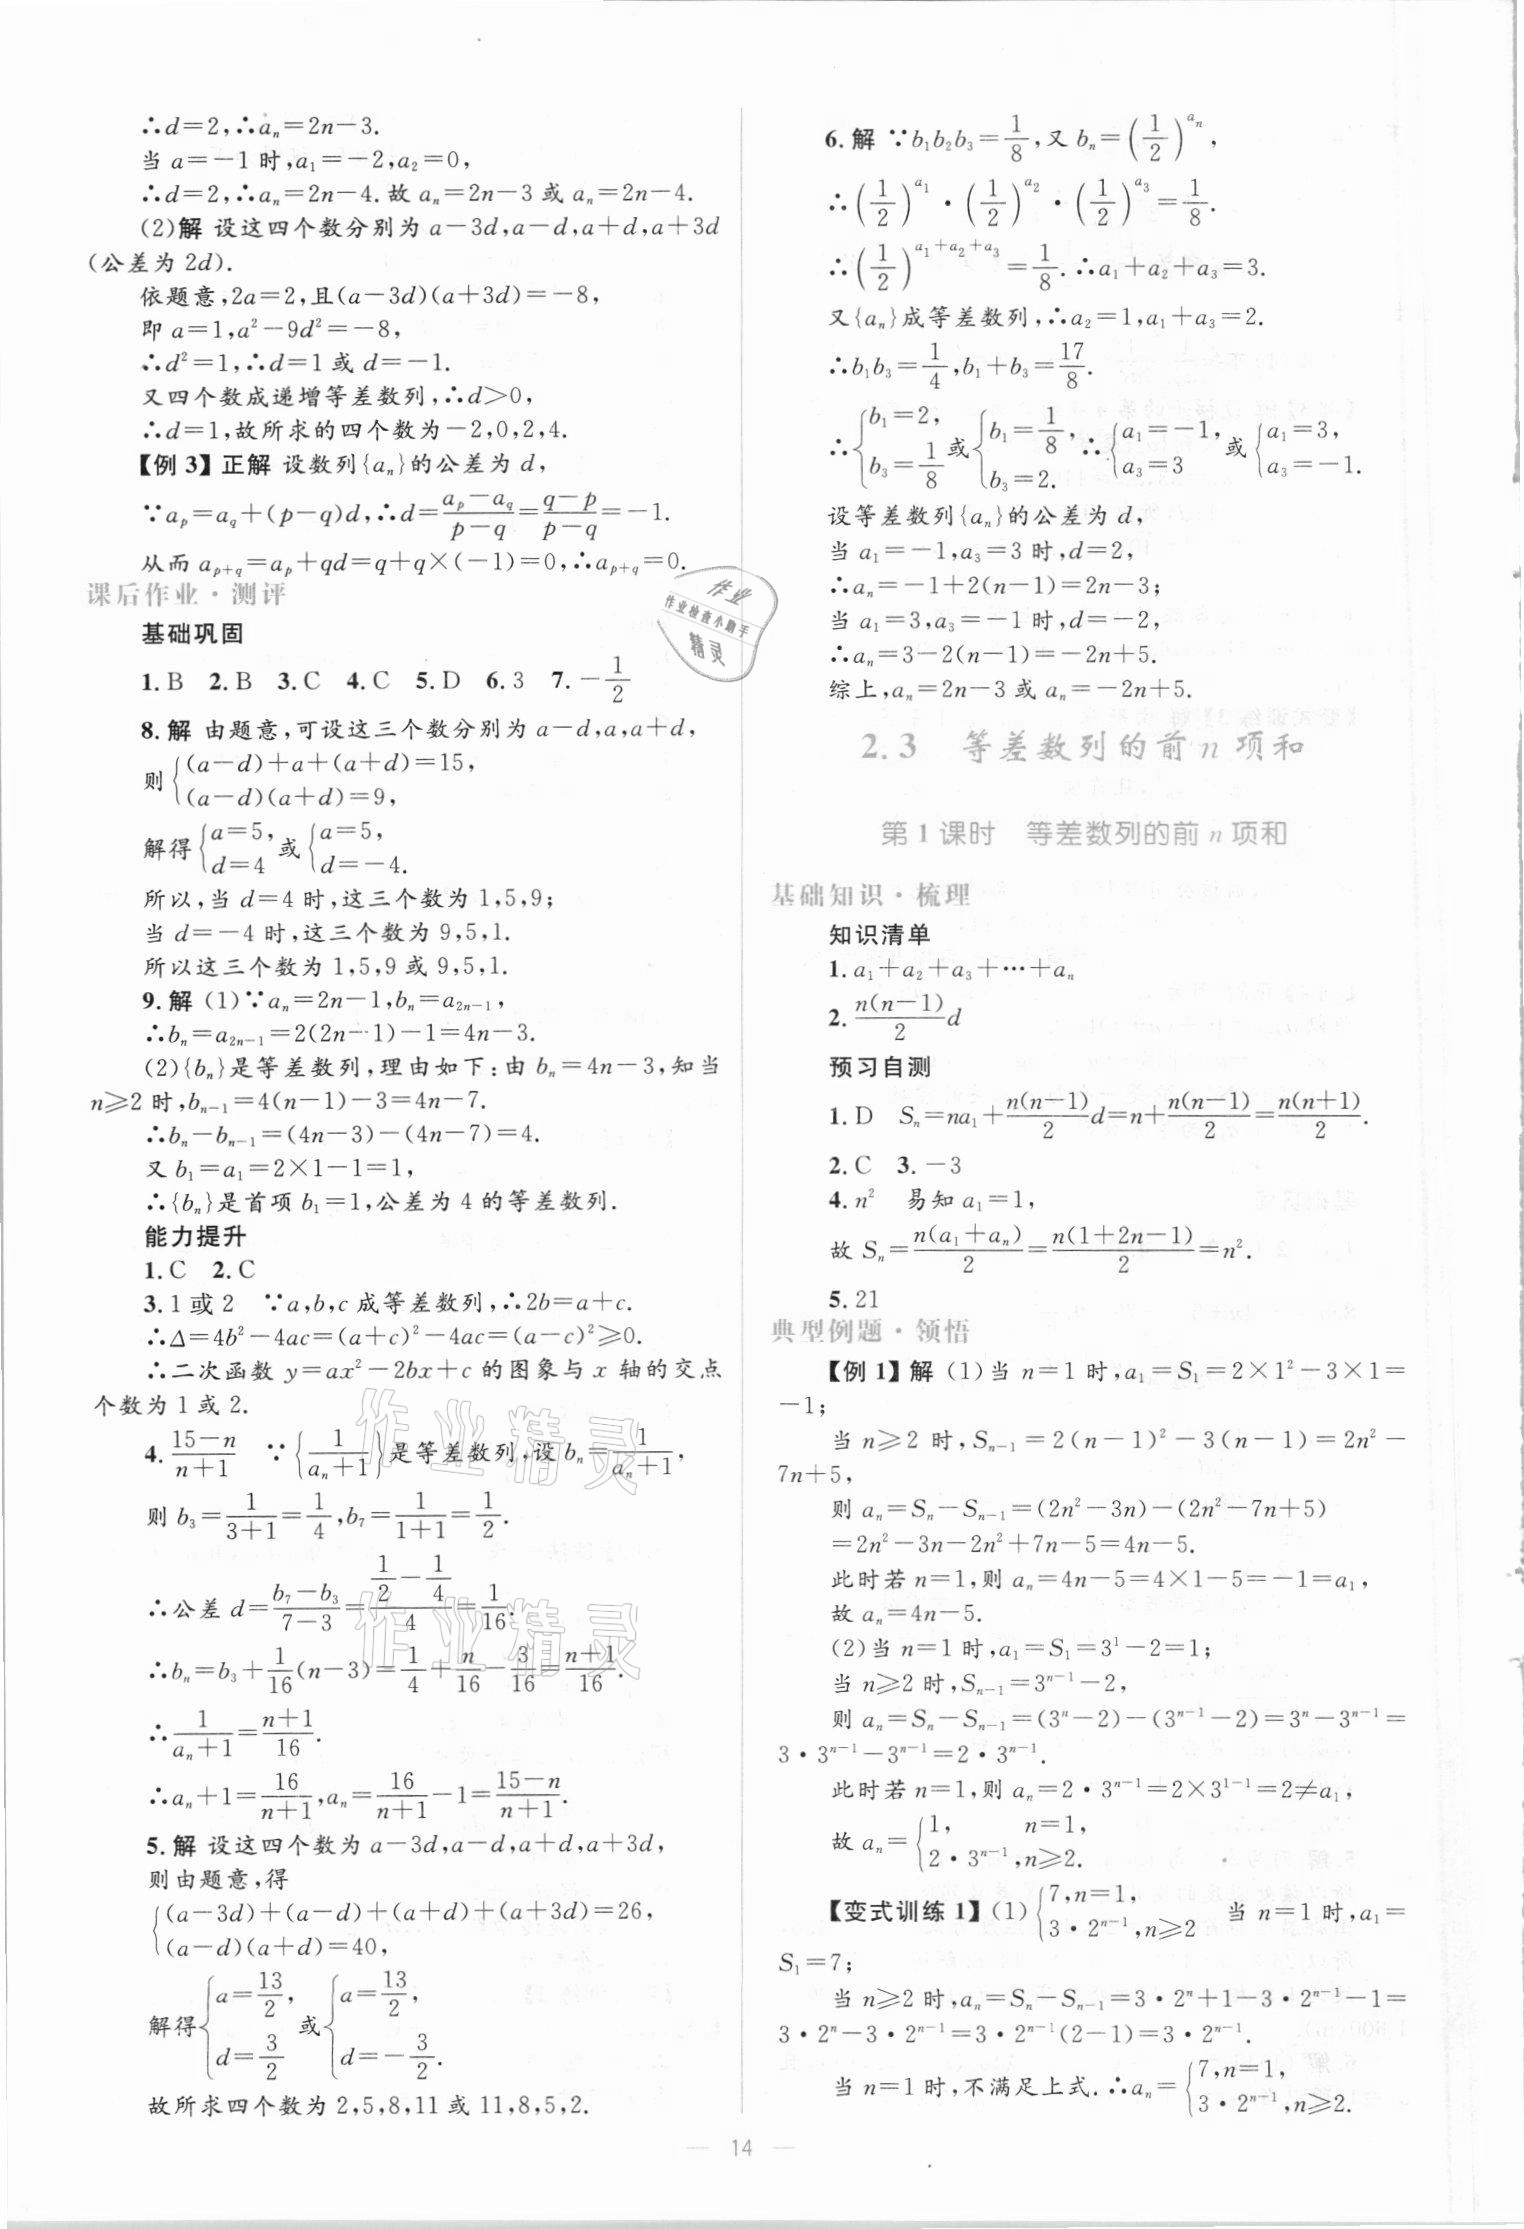 ∴d=2,∴aₙ=2n−3.
当 a=−1 时,a₁=−2,a₂=0,
∴d=2,∴aₙ=2n−4.故 aₙ=2n−3 或 aₙ=2n−4.
(2)解 设这四个数分别为 a−3d,a−d,a+d,a+3d
(公差为 2d).
依题意,2a=2,且(a−3d)(a+3d)=−8,
即 a=1,a²−9d²=−8,
∴d²=1,∴d=1 或 d=−1.
又四个数成递增等差数列,∴d>0,
∴d=1,故所求的四个数为−2,0,2,4.
【例 3】正解 设数列{aₙ}的公差为 d,
∵a_p=a_q+(p−q)d,∴d=(a_p−a_q)/(p−q)=(q−p)/(p−q)=−1.
从而 a_{p+q}=a_p+qd=q+q×(−1)=0,∴a_{p+q}=0.
课后作业·测评
基础巩固
1.B 2.B 3.C 4.C 5.D 6.3 7.−1/2
8.解 由题意,可设这三个数分别为 a−d,a,a+d,
则{(a−d)+a+(a+d)=15,
(a−d)(a+d)=9,
解得{a=5, d=4 或{a=5, d=−4.
所以,当 d=4 时,这三个数为 1,5,9;
当 d=−4 时,这三个数为 9,5,1.
所以这三个数为 1,5,9 或 9,5,1.
9.解 (1)∵aₙ=2n−1,bₙ=a_{2n−1},
∴bₙ=a_{2n−1}=2(2n−1)−1=4n−3.
(2){bₙ}是等差数列,理由如下:由 bₙ=4n−3,知当
n≥2 时,bₙ₋₁=4(n−1)−3=4n−7.
∴bₙ−bₙ₋₁=(4n−3)−(4n−7)=4.
又 b₁=a₁=2×1−1=1,
∴{bₙ}是首项 b₁=1,公差为 4 的等差数列.
能力提升
1.C 2.C
3.1 或 2 ∵a,b,c 成等差数列,∴2b=a+c.
∴Δ=4b²−4ac=(a+c)²−4ac=(a−c)²≥0.
∴二次函数 y=ax²−2bx+c 的图象与 x 轴的交点
个数为 1 或 2.
4.(15−n)/(n+1) ∵{1/(aₙ+1)}是等差数列,设 bₙ=1/(aₙ+1),
则 b₃=1/(3+1)=1/4,b₇=1/(1+1)=1/2.
∴公差 d=(b₇−b₃)/(7−3)=(1/2−1/4)/4=1/16.
∴bₙ=b₃+1/16(n−3)=1/4+n/16−3/16=(n+1)/16.
∴1/(aₙ+1)=(n+1)/16.
∴aₙ+1=16/(n+1),aₙ=16/(n+1)−1=(15−n)/(n+1).
5.解 设这四个数为 a−3d,a−d,a+d,a+3d,
则由题意,得
{(a−3d)+(a−d)+(a+d)+(a+3d)=26,
(a−d)(a+d)=40,
解得{a=13/2, d=3/2 或{a=13/2, d=−3/2.
故所求四个数为 2,5,8,11 或 11,8,5,2.
6.解 ∵b₁b₂b₃=1/8,又 bₙ=(1/2)^{aₙ},
∴(1/2)^{a₁}·(1/2)^{a₂}·(1/2)^{a₃}=1/8.
∴(1/2)^{a₁+a₂+a₃}=1/8.∴a₁+a₂+a₃=3.
又{aₙ}成等差数列,∴a₂=1,a₁+a₃=2.
∴b₁b₃=1/4,b₁+b₃=17/8.
∴{b₁=2, b₃=1/8 或{b₁=1/8, b₃=2. ∴{a₁=−1, a₃=3 或{a₁=3, a₃=−1.
设等差数列{aₙ}的公差为 d,
当 a₁=−1,a₃=3 时,d=2,
∴aₙ=−1+2(n−1)=2n−3;
当 a₁=3,a₃=−1 时,d=−2,
∴aₙ=3−2(n−1)=−2n+5.
综上,aₙ=2n−3 或 aₙ=−2n+5.
2.3 等差数列的前 n 项和
第 1 课时 等差数列的前 n 项和
基础知识·梳理
知识清单
1.a₁+a₂+a₃+⋯+aₙ
2.n(n−1)/2 d
预习自测
1.D Sₙ=na₁+n(n−1)/2 d=n+n(n−1)/2=n(n+1)/2.
2.C 3.−3
4.n² 易知 a₁=1,
故 Sₙ=n(a₁+aₙ)/2=n(1+2n−1)/2=n².
5.21
典型例题·领悟
【例 1】解 (1)当 n=1 时,a₁=S₁=2×1²−3×1=
−1;
当 n≥2 时,Sₙ₋₁=2(n−1)²−3(n−1)=2n²−
7n+5,
则 aₙ=Sₙ−Sₙ₋₁=(2n²−3n)−(2n²−7n+5)
=2n²−3n−2n²+7n−5=4n−5.
此时若 n=1,则 aₙ=4n−5=4×1−5=−1=a₁,
故 aₙ=4n−5.
(2)当 n=1 时,a₁=S₁=3¹−2=1;
当 n≥2 时,Sₙ₋₁=3ⁿ⁻¹−2,
则 aₙ=Sₙ−Sₙ₋₁=(3ⁿ−2)−(3ⁿ⁻¹−2)=3ⁿ−3ⁿ⁻¹=
3·3ⁿ⁻¹−3ⁿ⁻¹=2·3ⁿ⁻¹.
此时若 n=1,则 aₙ=2·3ⁿ⁻¹=2×3¹⁻¹=2≠a₁,
故 aₙ={1, n=1,
2·3ⁿ⁻¹,n≥2.
【变式训练 1】(1){7,n=1, 3·2ⁿ⁻¹,n≥2 当 n=1 时,a₁=
S₁=7;
当 n≥2 时,aₙ=Sₙ−Sₙ₋₁=3·2ⁿ+1−3·2ⁿ⁻¹−1=
3·2ⁿ−3·2ⁿ⁻¹=3·2ⁿ⁻¹(2−1)=3·2ⁿ⁻¹.
当 n=1 时,不满足上式.∴aₙ={7,n=1,
3·2ⁿ⁻¹,n≥2.
14
作业
作业检查小助手
精灵
作业精灵
作业精灵